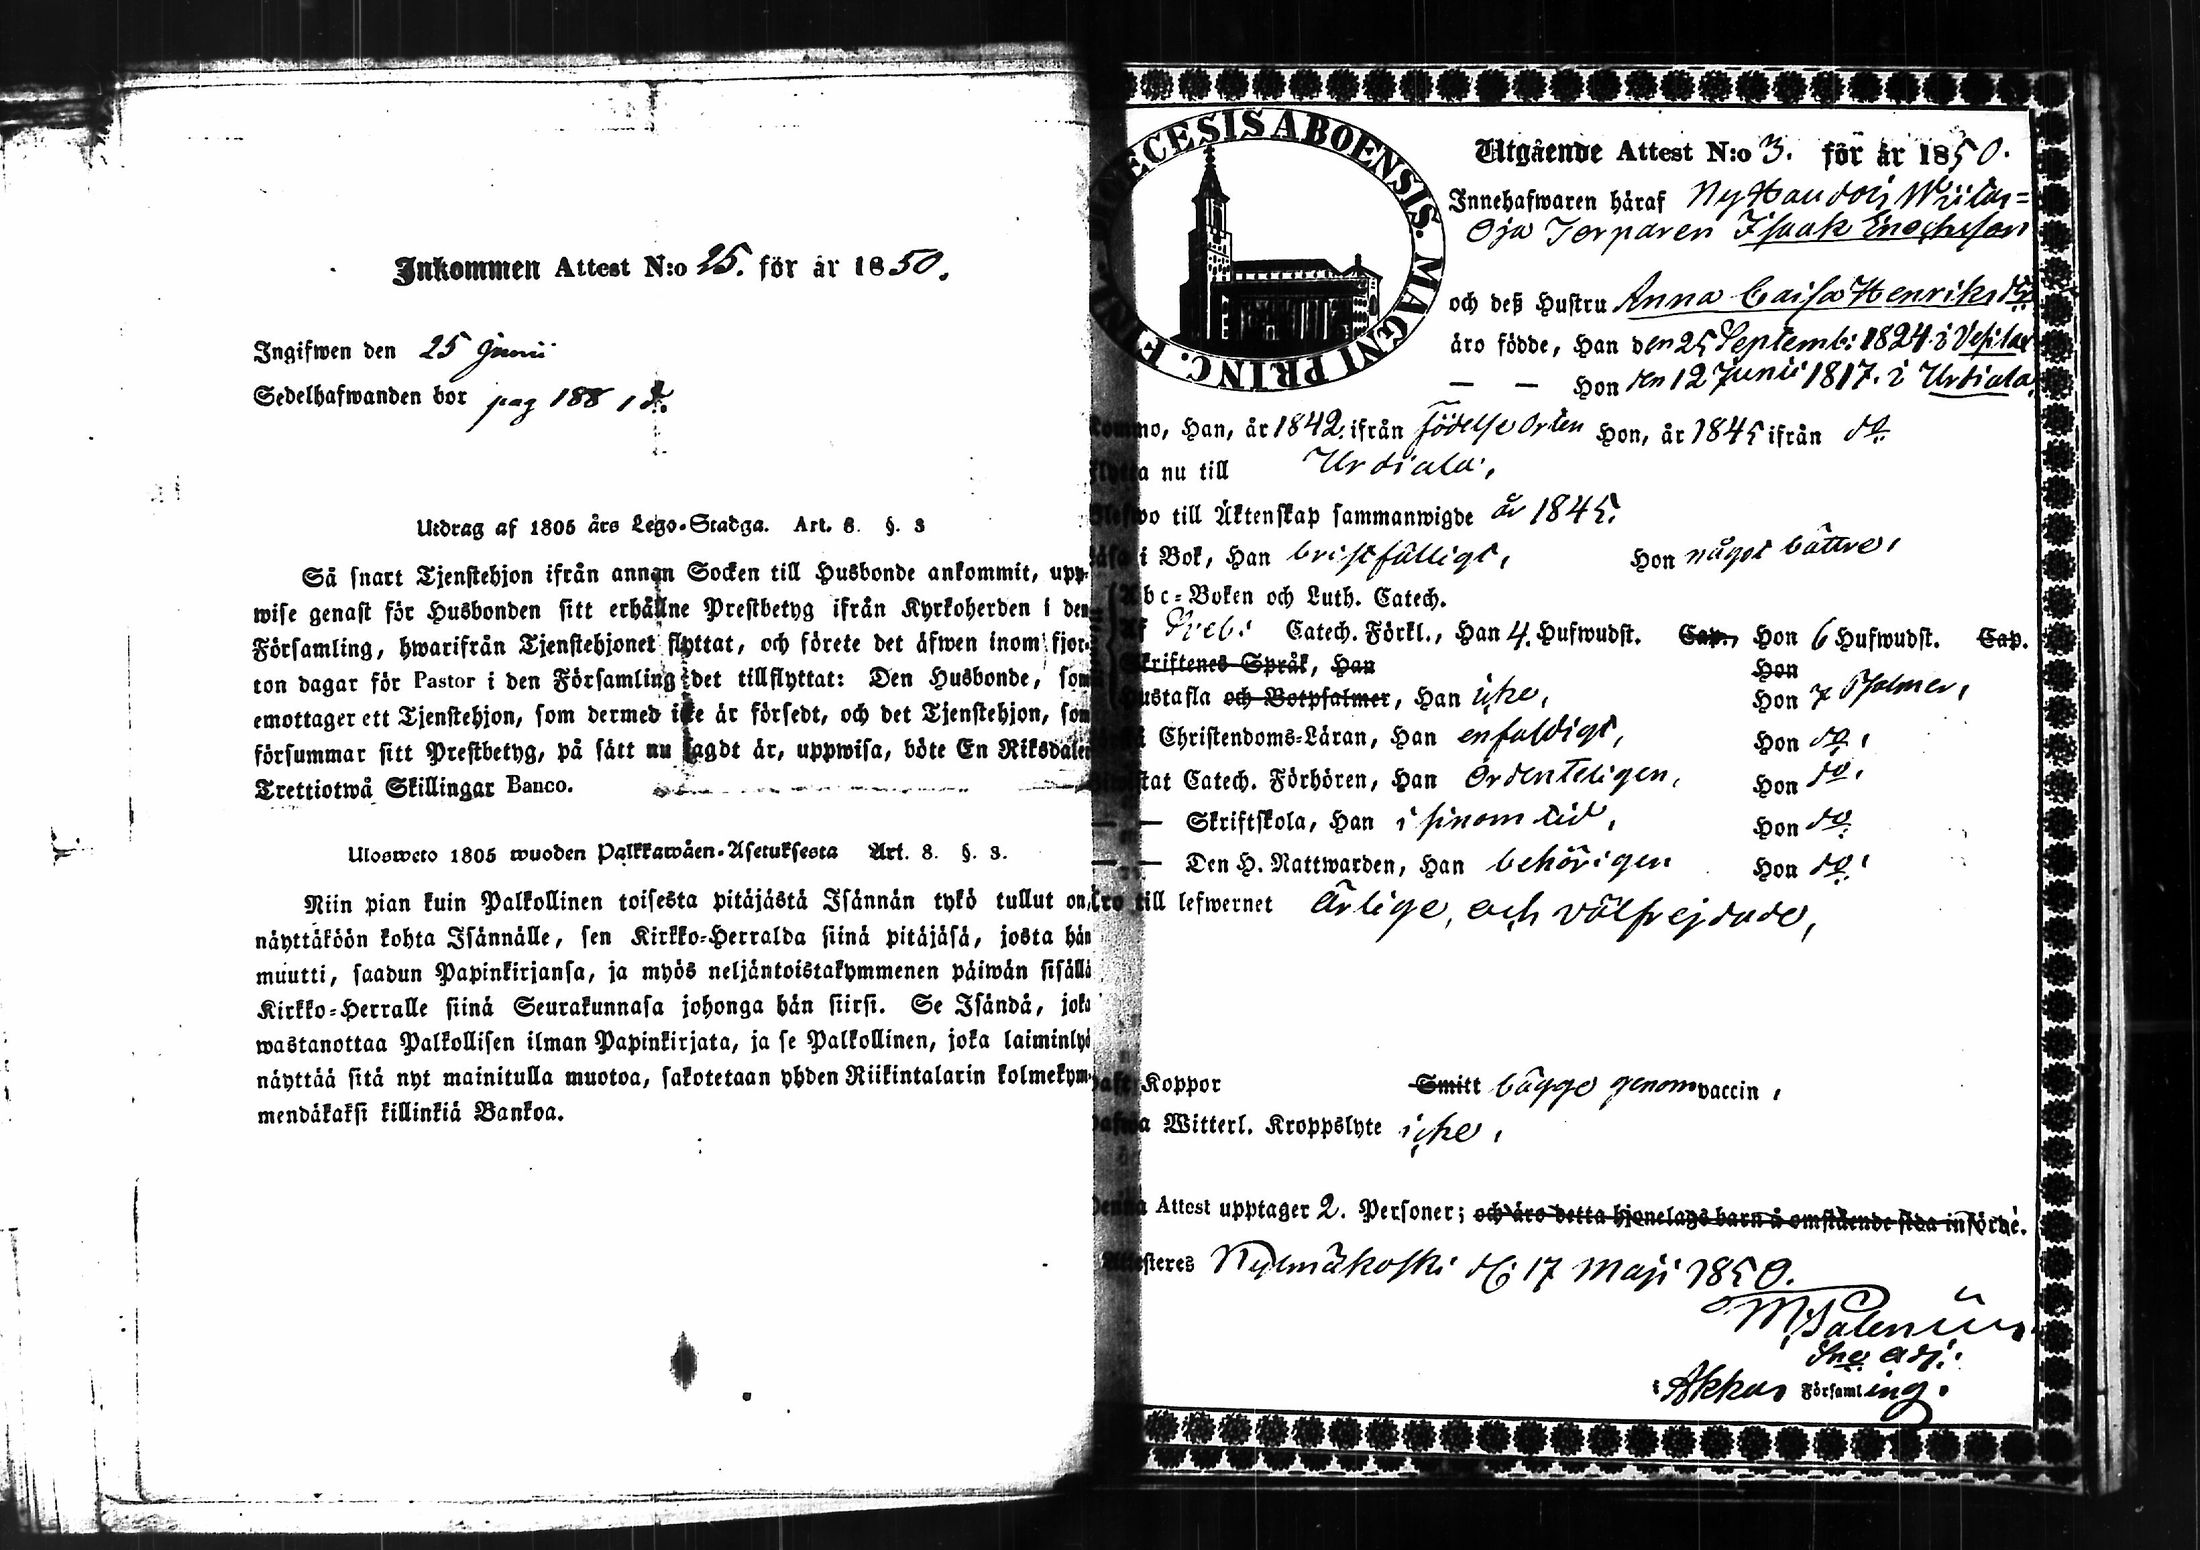 Inkommen Attest N:o 25. för år 1850.
Ingifwen den 25 Junii
Sedelhafwanden bor pag 188
Utdrag af 1805 års Lego-Stadga. Art. 8. §. 3
Så snart Tjenstehjon ifrån annan Socken till Husbonde ankommit, upp-
wise genast för Husbonden sitt erhållne Prestbetyg ifrån Kyrkoherden i den
Församling, hwarifrån Tjenstehjonet flyttat, och förete det äfwen inom fjor-
ton dagar för Pastor i den Församling det tillflyttat: Den Husbonde, som
emottager ett Tjenstehjon, som dermed icke är försedt, och det Tjenstehjon, som
försummar sitt Prestbetyg, på sätt nu sagdt är, uppwisa, böte En Riksdaler
Trettiotwå Skillingar Banco.
Ulosweto 1805 wuoden Palkkawäen-Asetuksesta Art. 8. §. 3.
Niin pian kuin Palkollinen toisesta pitäjästä Isännän tykö tullut on,
näyttäköön kohta Isännälle, sen Kirkko-Herralda siinä pitäjäsä, josta hän
muutti, saadun Papinkirjansa, ja myös neljäntoistakymmenen päiwän sisällä
Kirkko-Herralle siinä Seurakunnasa johonga hän siirsi. Se Isändä, joka
wastanottaa Palkollisen ilman Papinkirjata, ja se Palkollinen, joka laiminlyö
näyttää sitä nyt mainitulla muotoa, sakotetaan yhden Riikintalarin kolmekym-
mendäkaksi killinkiä Bankoa.
DIOECESIS ABOENSIS. MAGNI PRINC. FINL.
Utgående Attest N:o 3. för år 1850.
Innehafwaren häraf
Oja Torparen Isaak Enochsson
och deß Hustru Anna Caisa Henriksdr
äro födde, Han den 25 Septemb: 1824 i Vesilax
— — Hon den 12 Junii 1817. i Urdiala
kommo, Han, år 1842. ifrån födelse Orten Hon, år 1845 ifrån do
flytta nu till Urdiala,
Blefwo till Äktenskap sammanwigde år 1845.
läsa i Bok, Han bristfälligt, Hon något bättre,
Abc-Boken och Luth. Catech.
Af Sveb: Catech. Förkl., Han 4. Hufwudst. Cap., Hon 6 Hufwudst. Cap.
Skriftenes Språk, Han Hon
Hustafla och Botpsalmer, Han icke, Hon 7 Psalmer,
Christendoms-Läran, Han enfaldigt, Hon do,
Catech. Förhören, Han Ordenteligen, Hon do,
— — Skriftskola, Han i sinom tid, Hon do.
— — Den H. Nattwarden, Han behörigen Hon do,
Äro till lefwernet Ärlige, och välfrejdade,
haft Koppor Smitt bägge genom vaccin,
hafwa Witterl. Kroppslyte icke,
Denna Attest upptager 2. Personer; och äro detta hjonelags barn å omstående sida införde.
Attesteres Kylmäkoski d: 17 Maji 1850.
M Salenius
adj:
i Akkas Församling.